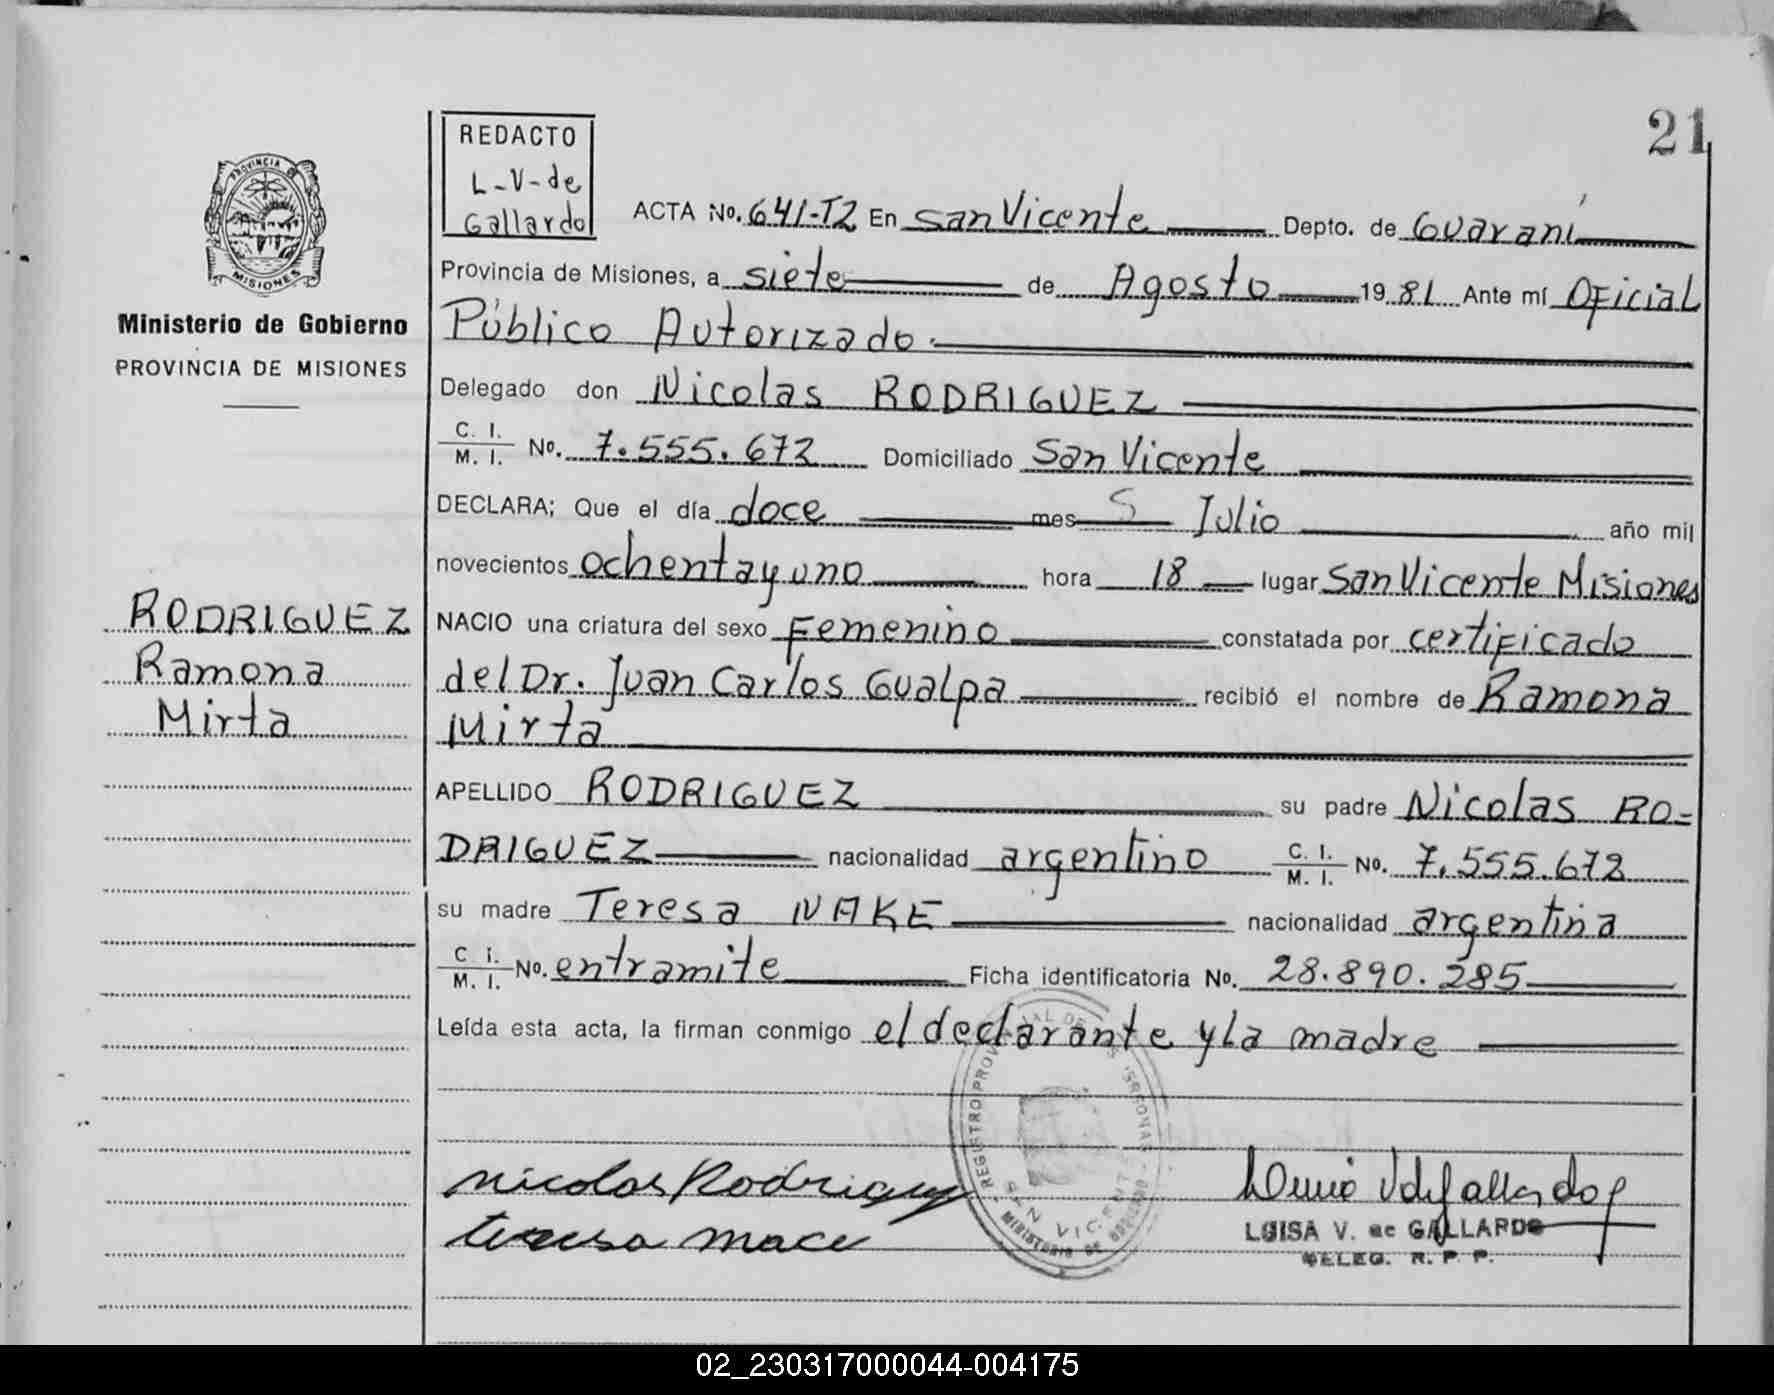 21
REDACTO
L-V-de
Gallardo
PROVINCIA
MISIONES
Ministerio de Gobierno
PROVINCIA DE MISIONES
RODRIGUEZ
Ramona
Mirta
ACTA No. 641-T2 En San Vicente Depto. de Guaraní
Provincia de Misiones, a siete de Agosto 1981 Ante mí Oficial
Público Autorizado.
Delegado don Nicolas RODRIGUEZ
C. I.
M. I. No. 7.555.672 Domiciliado San Vicente
DECLARA; Que el día doce mes Julio año mil
novecientos ochentayuno hora 18 lugar San Vicente Misiones
NACIO una criatura del sexo Femenino constatada por certificado
del Dr. Juan Carlos Gualpa recibió el nombre de Ramona
Mirta
APELLIDO RODRIGUEZ su padre Nicolas RO=
DRIGUEZ nacionalidad argentino C. I. M. I. No. 7.555.672
su madre Teresa NAKE nacionalidad argentina
C. i.
M. I. No. entramite Ficha identificatoria No. 28.890.285
Leída esta acta, la firman conmigo el declarante y la madre
nicolas Rodriguez
teresa mace
LUISA V. de GALLARDO
DELEG. R. P. P.
REGISTRO PROVINCIAL DE LAS PERSONAS
SAN VICENTE
MINISTERIO DE GOBIERNO
02_230317000044-004175